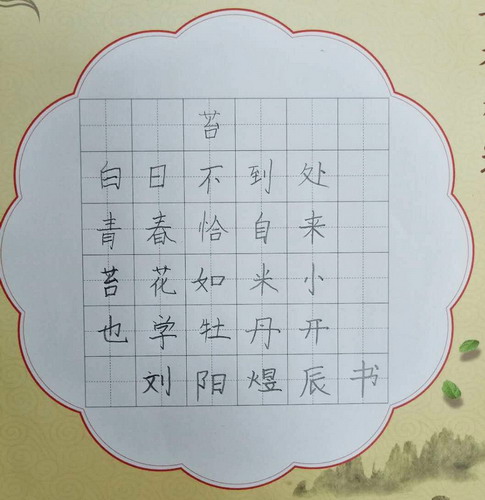 苔
白日不到处
青春恰自来
苔花如米小
也学牡丹开
刘阳煜辰书